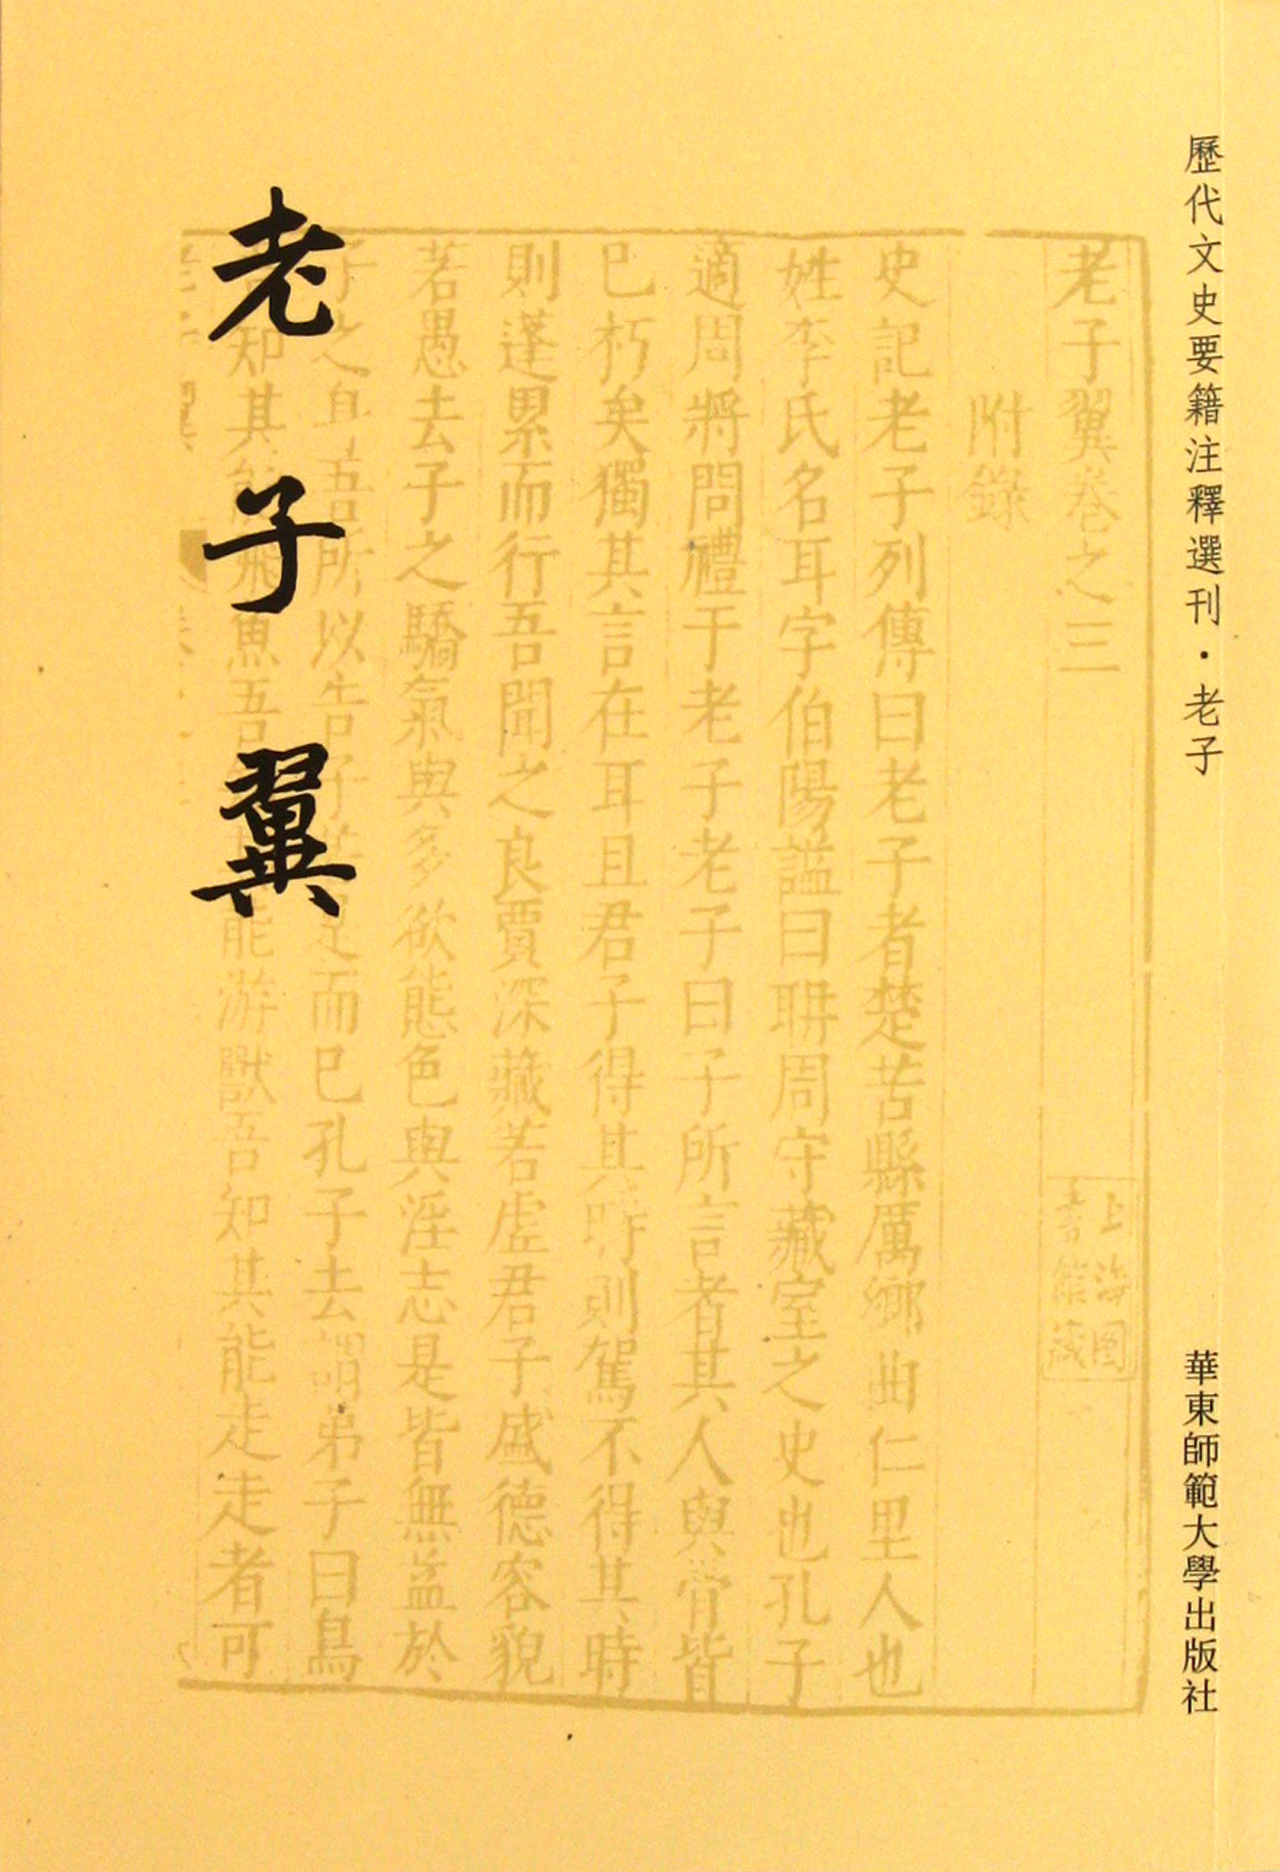 歷代文史要籍注釋選刊·老子
華東師範大學出版社
老子翼
老子翼卷之三
上海圖
書館藏
附錄
史記老子列傳曰老子者楚苦縣厲鄉曲仁里人也
姓李氏名耳字伯陽謚曰聃周守藏室之史也孔子
適周將問禮于老子老子曰子所言者其人與骨皆
已朽矣獨其言在耳且君子得其時則駕不得其時
則蓬累而行吾聞之良賈深藏若虛君子盛德容貌
若愚去子之驕氣與多欲態色與淫志是皆無益於
子之身吾所以告子若是而已孔子去謂弟子曰鳥
知其能飛魚吾知其能游獸吾知其能走走者可